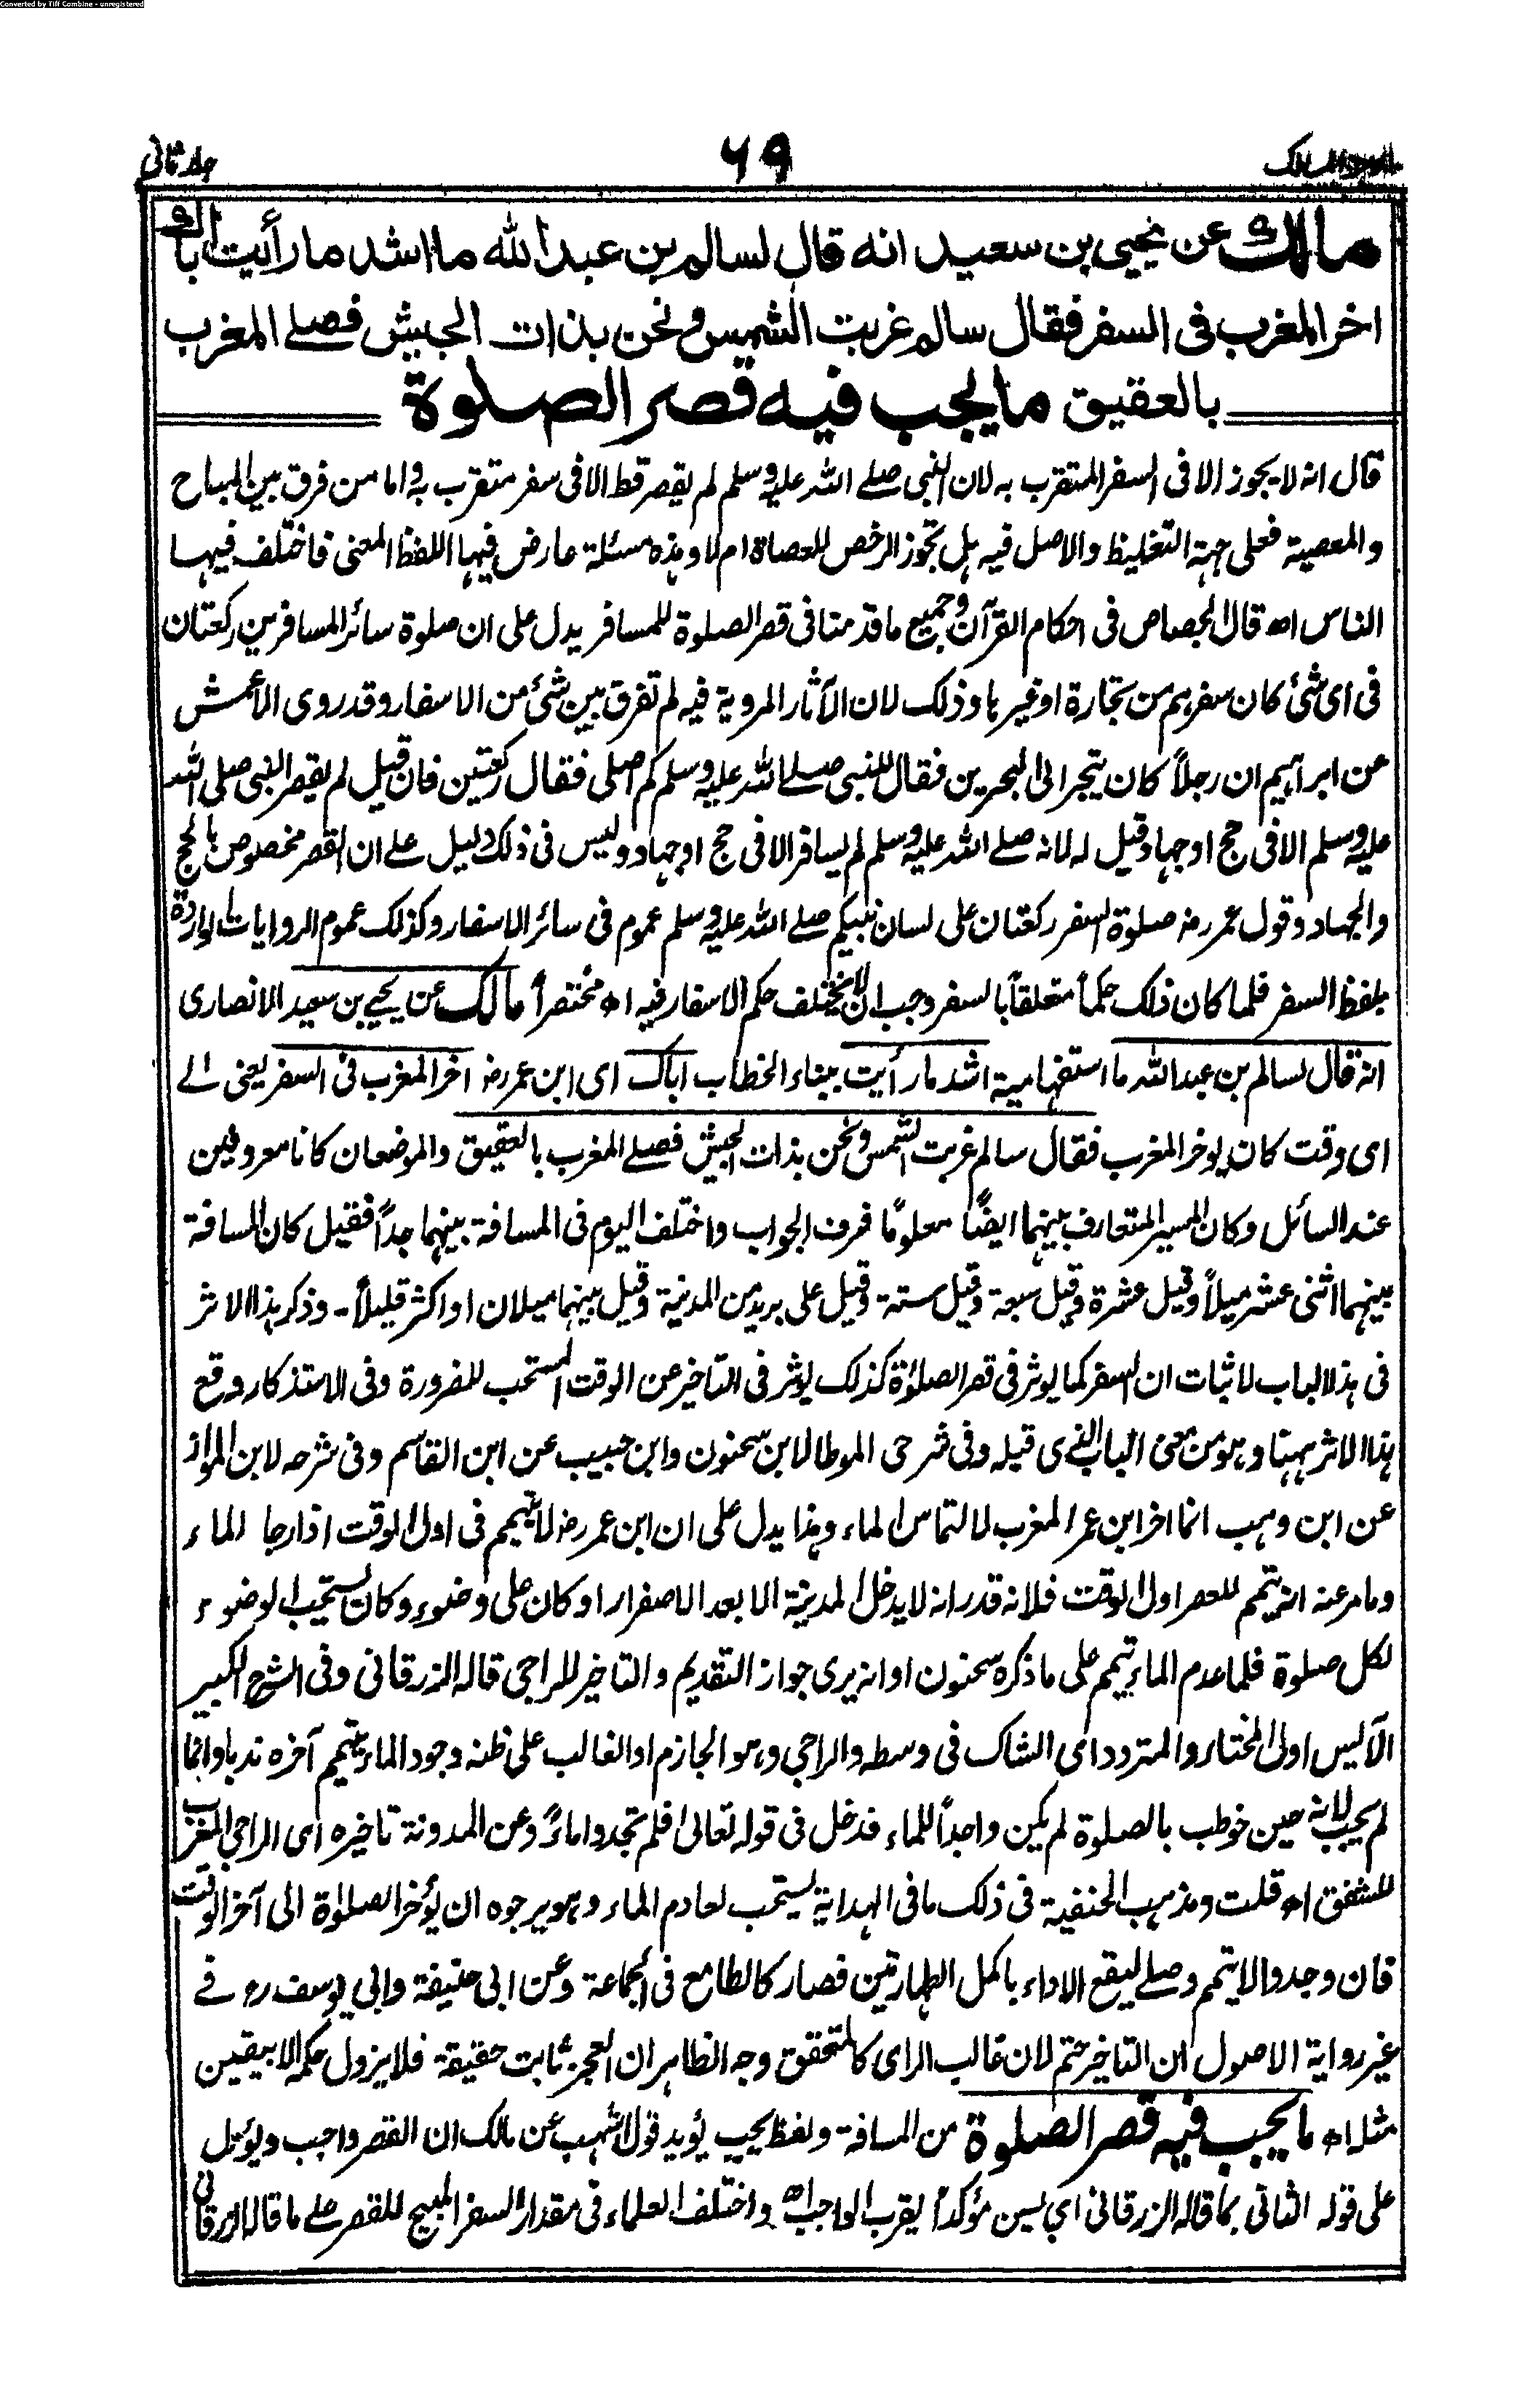 Converted by Tiff Combine - unregistered
جلد ثانی
۶۹
اوجز المسالک
مالك عن يحيى بن سعيد انه قال لسالم بن عبد الله ما اشد ما رأيت اباك
اخر المغرب فى السفر فقال سالم غربت الشمس ونحن بذات الجيش فصلے المغرب
بالعقيق ما يجب فيه قصر الصلوة
قال انه لا يجوز الا فى السفر المتقرب به لان النبى صلے الله عليه وسلم لم يقصر قط الا فى سفر متقرب به واما من فرق بين المباح
والمعصية فعلى جهة التغليظ والاصل فيه هل تجوز الرخص للعصاة ام لا وهذه مسئلة عارض فيها اللفظ المعنى فاختلف فيها
الناس اھ قال الجصاص فى احكام القرآن وجميع ما قدمنا فى قصر الصلوة للمسافر يدل على ان صلوة سائر المسافرين ركعتان
فى اى شئ كان سفرهم من تجارة او غيرها وذلك لان الآثار المروية فيه لم تفرق بين شئ من الاسفار وقد روى الأعمش
عن ابراهيم ان رجلاً كان يتجر الى البحرين فقال للنبى صلے الله عليه وسلم كم اصلى فقال ركعتين فان قيل لم يقصر النبى صلى الله
عليه وسلم الا فى حج او جهاد قيل له لانه صلے الله عليه وسلم لم يسافر الا فى حج او جهاد وليس فى ذلك دليل على ان القصر مخصوص بالحج
والجهاد وقول عمر رضہ صلوة السفر ركعتان على لسان نبيكم صلے الله عليه وسلم عموم فى سائر الاسفار وكذلك عموم الروايات الواردة
بلفظ السفر فلما كان ذلك حكماً متعلقاً بالسفر وجب ان لا يختلف حكم الاسفار فيه اھ مختصراً مالك عن يحيے بن سعيد الانصارى
انه قال لسالم بن عبد الله ما استفهامية اشد ما رأيت بتاء الخطاب اباك اى ابن عمر رضہ اخر المغرب فى السفر يعنى الے
اى وقت كان يوخر المغرب فقال سالم غربت الشمس ونحن بذات الجيش فصلے المغرب بالعقيق والموضعان كانا معروفين
عند السائل وكان المسير المتعارف بينهما ايضًا معلومًا فعرف الجواب واختلف اليوم فى المسافة بينهما جداً فقيل كان المسافة
بينهما اثنى عشر ميلاً وقيل عشرة وقيل سبعة وقيل ستة وقيل على بريد من المدينة وقيل بينهما ميلان او اكثر قليلاً۔ وذكر هذا الاثر
فى هذا الباب لاثبات ان السفر كما يوثر فى قصر الصلوٰة كذلك يوثر فى التاخير عن الوقت المستحب للضرورة وفى الاستذكار وقع
هذا الاثر ههنا وهو من معنى الباب الذى قبله وفى شرحى الموطا لابن سحنون وابن حبيب عن ابن القاسم وفى شرحه لابن المواز
عن ابن وهب انما اخر ابن عمر المغرب لالتماس الماء وهذا يدل على ان ابن عمر رضہ لا يتيمم فى اول الوقت اذا رجا الماء
وما مر عنه انه تيمم للعصر اول الوقت فلانه قدر انه لا يدخل المدينة الا بعد الاصفرار او كان على وضوء وكان يستحب الوضوء
لكل صلوة فلما عدم الماء تيمم على ما ذكره سحنون او انه يرى جواز التقديم والتاخير للراجى قاله الزرقانى وفى الشرح الكبير
الآليس اول المختار والمتردد اى الشاك فى وسطه والراجى وهو الجازم او الغالب على ظنه وجود الماء يتيمم آخره ندبا وانما
لم يجب لانه حين خوطب بالصلوة لم يكن واجداً للماء فدخل فى قوله تعالىٰ فلم تجدوا ماءً وعن المدونة تاخيره اى الراجى المغرب
للشفق اھ قلت ومذهب الحنفية فى ذلك ما فى الهداية يستحب لعادم الماء وهو يرجوه ان يؤخر الصلوٰة الى آخر الوقت
فان وجد والا يتيمم وصلے ليقع الاداء باكمل الطهارتين فصار كالطامع فى الجماعة وعن ابى حنيفة وابي يوسف رہ فے
غير رواية الاصول ان التاخير حتم لان غالب الراى كالمتحقق وجه الظاهر ان العجز ثابت حقيقة فلا يزول حكمه الا بيقين
مثله اھ ما يجب فيه قصر الصلوة من المسافة ولفظ يجب يؤيد قول اشهب عن مالك ان القصر واجب ويؤول
على قوله الثانى بما قاله الزرقانى اي يسن مؤكداً يقرب الواجب اھ واختلف العلماء فى مقدار السفر المبيح للقصر على ما قاله الزرقانى